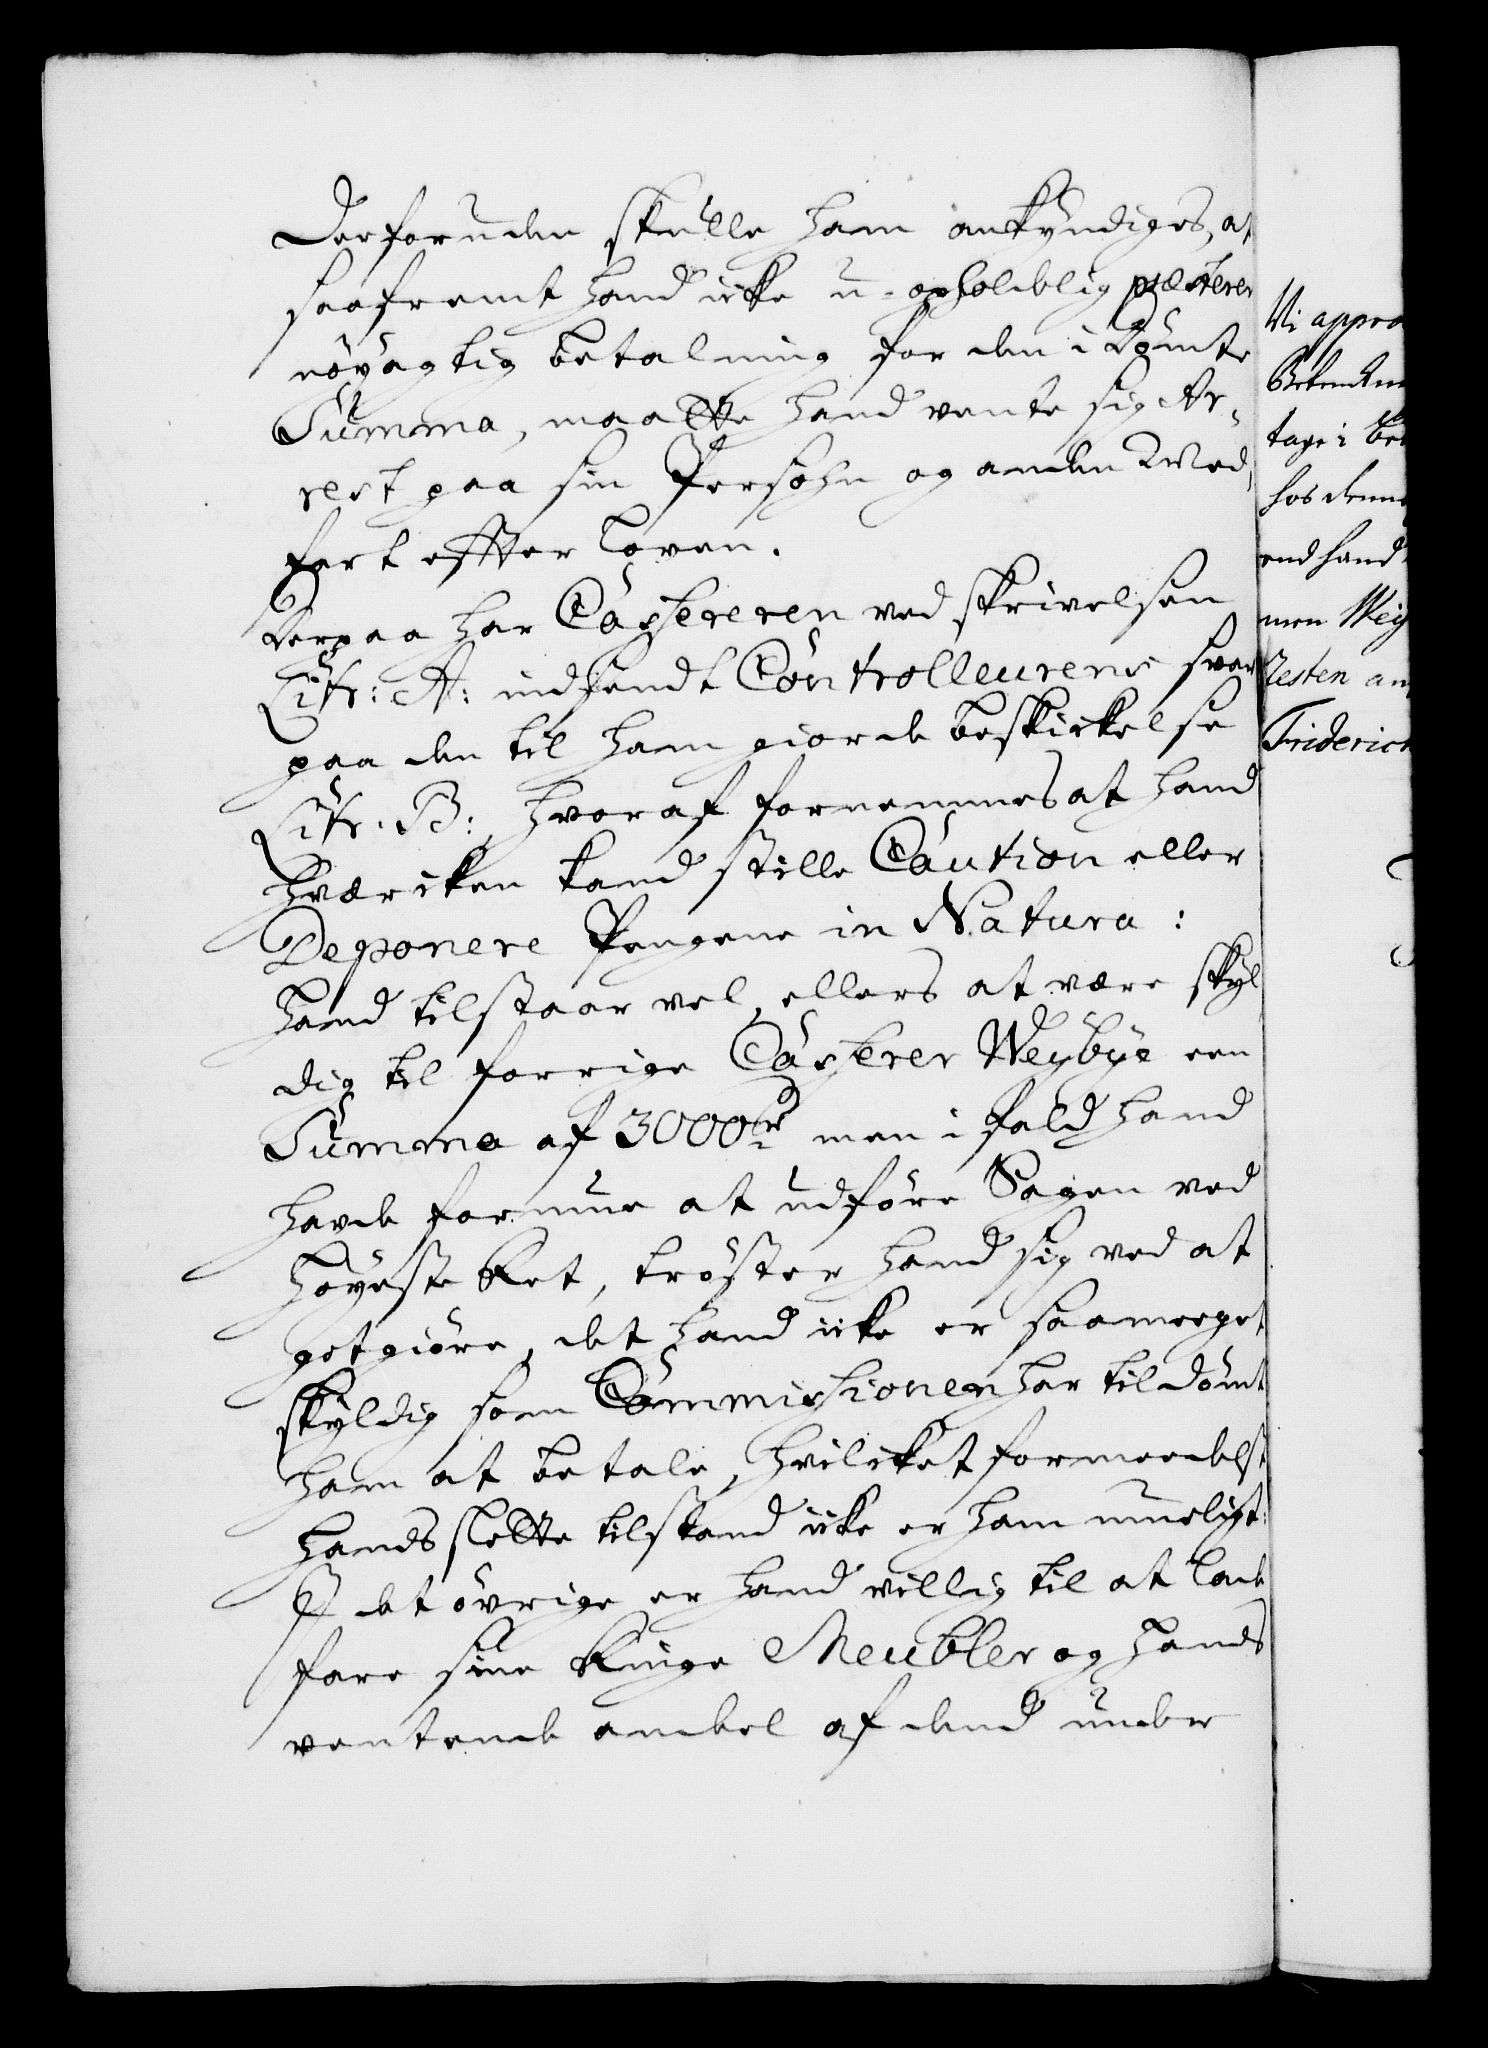 Derforuden skulle ham ankyndiges, at
saafremt hand icke u-opholdelig præsterer
nöyagtig betalning for den idömte
Summa, maatte hand vente sig Ar-
rest paa sin Persohn og anden Med-
fart effter Loven.
Derpaa har Casserern ved skrivelsen
Litr: A: indsendt Controlleurens svar
paa den til ham giorde beskickelse
Litr. B: hvoraf fornemmes at hand
hværcken kand stille Caution eller
Deponere Pengene in Natura:
Hand tilstaar vel ellers at være skyl
dig til forrige Casserer Weybye een
Summa af 3000 rd men i fald hand
havde formue at udföre Sagen ved
Höyeste Ret, tröster hand sig ved at
gotgiöre, det hand icke er saameeget
skyldig som Commissionen har tildömt
ham at betale, hvilcket formedelst
hands slette tilstand icke er ham mueligt:
J det övrige er hand villig til at lade
fare sine Ringe Meubler og hands
ventende andeel af dend under
Vi appro
tage i be
hos denne
end hand
men Wey
Resten an
Friderich